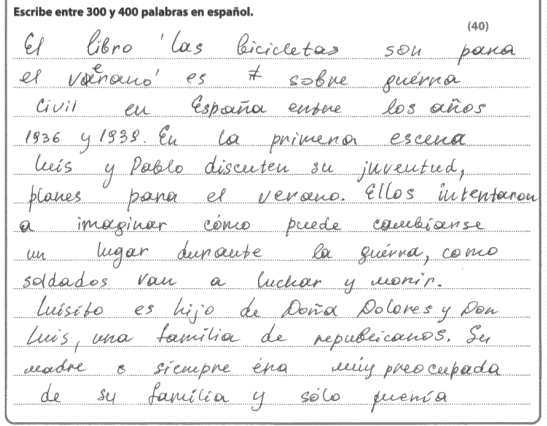 Escribe entre 300 y 400 palabras en español.
(40)
El libro 'las bicicletas son para
el verano' es sobre guérra
civil en España entre los años
1936 y 1939. En la primera escena
luis y Pablo discuten su juventud,
planes para el verano. Ellos intentaron
a imaginar cómo puede cambiarse
un lugar durante la guérra, como
soldados van a luchar y morir.
Luisito es hijo de Doña Dolores y Don
Luis, una familia de republicanos. Su
madre siempre éra múy preocupada
de su familia y sólo quería